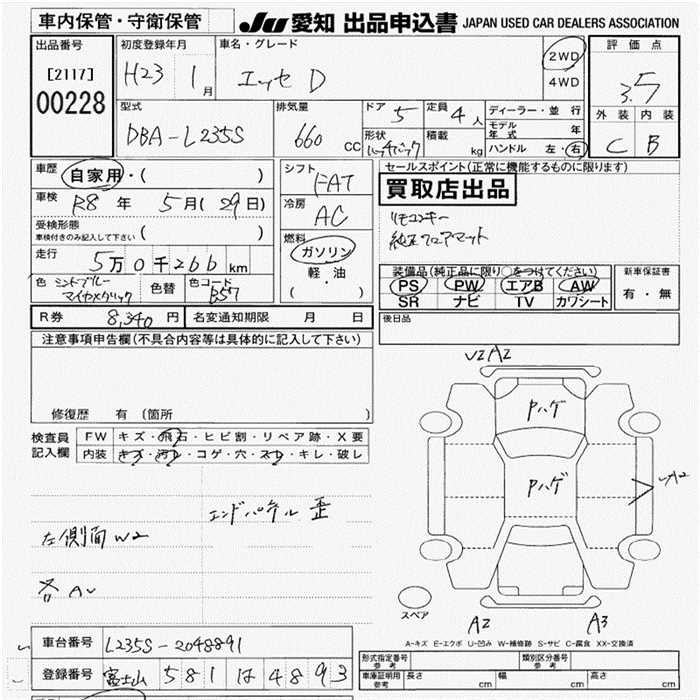 車内保管・守衛保管
JU 愛知 出品申込書 JAPAN USED CAR DEALERS ASSOCIATION
出品番号
[2117]
00228
初度登録年月
H23 1月
車名・グレード
エッセ D
2WD
4WD
評価点
3.5
外装 内装
C B
型式
DBA-L235S
排気量
660 CC
ドア 5
定員 4人
形状 ハッチバック
積載 kg
ディーラー・並行
モデル年式 年
ハンドル 左・右
車歴 自家用・( )
車検 R8年 5月(29日)
受検形態
車検付きのみ記入して下さい ( )
走行 5万0千266km
色 ミントブルーマイカメタリック
色替
色コード B57
シフト FAT
冷房 AC
燃料
ガソリン
軽・油
( )
セールスポイント(正常に機能するものに限ります)
買取店出品
リモコンキー
純正フロアマット
装備品(純正品に限り○をつけてください)
PS PW エアB AW
SR ナビ TV カワシート
新車保証書
有・無
R券 8,340円
名変通知期限 月 日
後日品
注意事項申告欄(不具合内容等は具体的に記入して下さい)
修復歴 有(箇所 )
検査員記入欄
FW キズ・飛石・ヒビ割・リペア跡・X要
内装 キズ・汚レ・コゲ・穴・スレ・キレ・破レ
エンドパネル歪
左側面W2
各AU
U2A2
Pハゲ
Pハゲ
A2
スペア
A2
A3
A-キズ E-エクボ U-凹み W-補修跡 S-サビ C-腐食 XX-交換済
車台番号 L235S-2048891
登録番号 富士山 581 は 4893
形式指定番号 参考
類別区分番号 参考
車庫証明用 参考 長さ cm 幅 cm 高さ cm